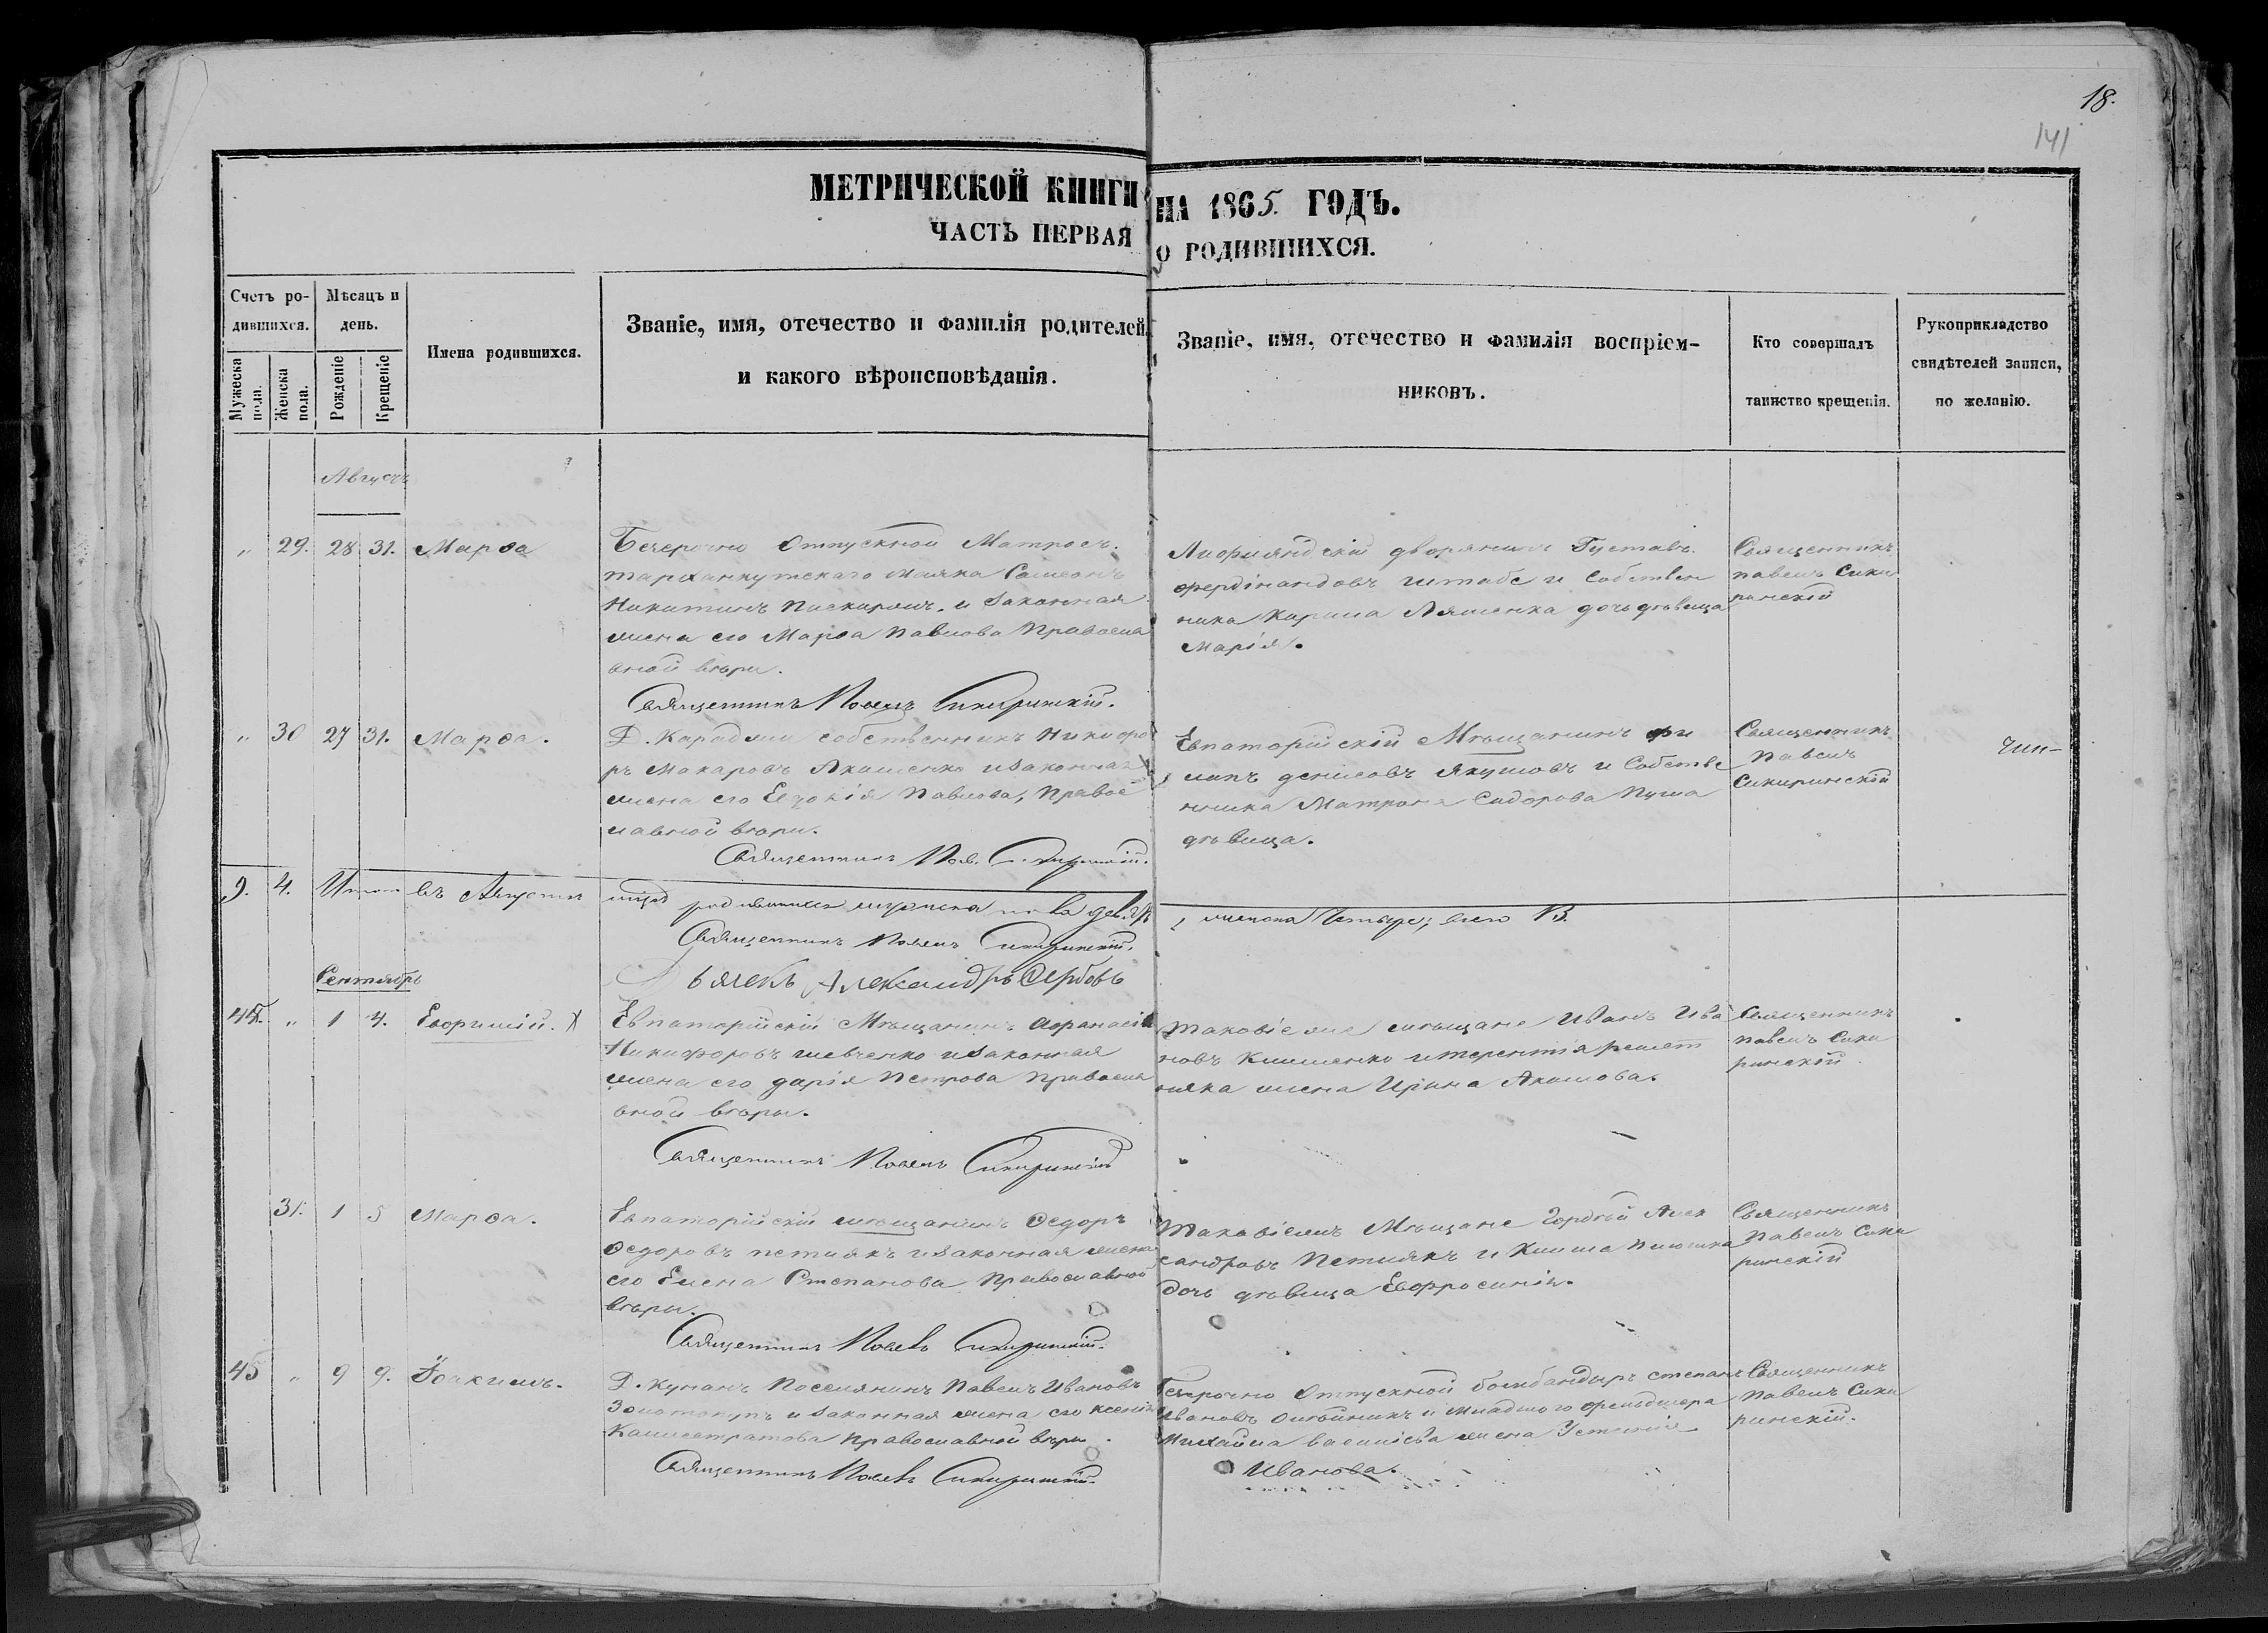 18.
141
МЕТРИЧЕСКОЙ КНИГИ НА 1865. ГОДЪ.
ЧАСТЬ ПЕРВАЯ О РОДИВШИХСЯ.
Счетъ ро-
дившихся.
Мужеска
пола.
Женска
пола.
Мѣсяцъ и
день.
Рожденіе
Крещеніе
Имена родившихся.
Званіе, имя, отечество и фамилія родителей,
и какого вѣроисповѣданія.
Званіе, имя, отечество и фамилія воспріем-
никовъ.
Кто совершалъ
таинство крещенія.
Рукоприкладство
свидѣтелей записи,
по желанію.
Августъ
„ 29. 28 31. Марѳа
Безсрочно Отпускной Матросъ
тарханкутскаго маяка
Никитинъ и законная
жена его Марѳа Павлова Правосла
вной вѣры.
Священникъ Павелъ Сикиринскій.
Лифляндскій дворянинъ Густавъ
фердінандовъ штабе и Собствен
ника Ляшенка дочь дѣвица
Марія.
Священникъ
павелъ Сики
ринскій
„ 30 27 31. Марѳа.
Д. Караджи собственникъ Никифо
ръ Макаровъ Акименко и законная
жена его Евдокія Павлова, Правос
лавной вѣры.
Священникъ Пав. Сикиринскій.
Евпаторійскій Мѣщанинъ фи
липъ денисовъ Якушовъ и Собстве
нника Матрона Сидорова
дѣвица.
Священникъ
Павелъ
Сикиринскій
9. 4. Итого въ Августѣ мцѣ родившихся мужеска пола дев.
женска Четыре; всего 13.
Священникъ Павелъ Сикиринскій.
Дьячекъ Александръ Сербовъ
Сентябрь
44. „ 1 4. Евфимій. X
Евпаторійскій Мѣщанинъ Афанасій
Никифоровъ шевченко и законная
жена его дарія Петрова правосла
вной вѣры.
Священникъ Павелъ Сикиринскій
таковіе же мѣщане Иванъ Ива
новъ Клименко и терентія решет
няка жена Ирина Акимова.
Священникъ
павелъ Сики
ринскій
31. 1 5 Марѳа.
Евпаторійскій мѣщанинъ Ѳедоръ
Ѳедоровъ петлякъ и законная жена
его Елена Степанова Православной
вѣры.
Священникъ Павелъ Сикиринскій.
Таковіежъ Мѣщане Гордѣй Алек
сандровъ Петлякъ и
дочь дѣвица Евфросинія.
Священникъ
Павелъ Сики
ринскій
45 „ 9 9. Іоакимъ.
Д. Кунанъ Поселянинъ Павелъ Ивановъ
Золотопупъ и законная жена его Ксенія
Калистратова Православной вѣры.
Священникъ Павелъ Сикиринскій.
Безсрочно Отпускной бомбандыръ степанъ
Ивановъ Олѣйникъ и Младшого фельдшера
Михайла василіева жена Устинія
Иванова.
Священникъ
Павелъ Сики
ринскій.